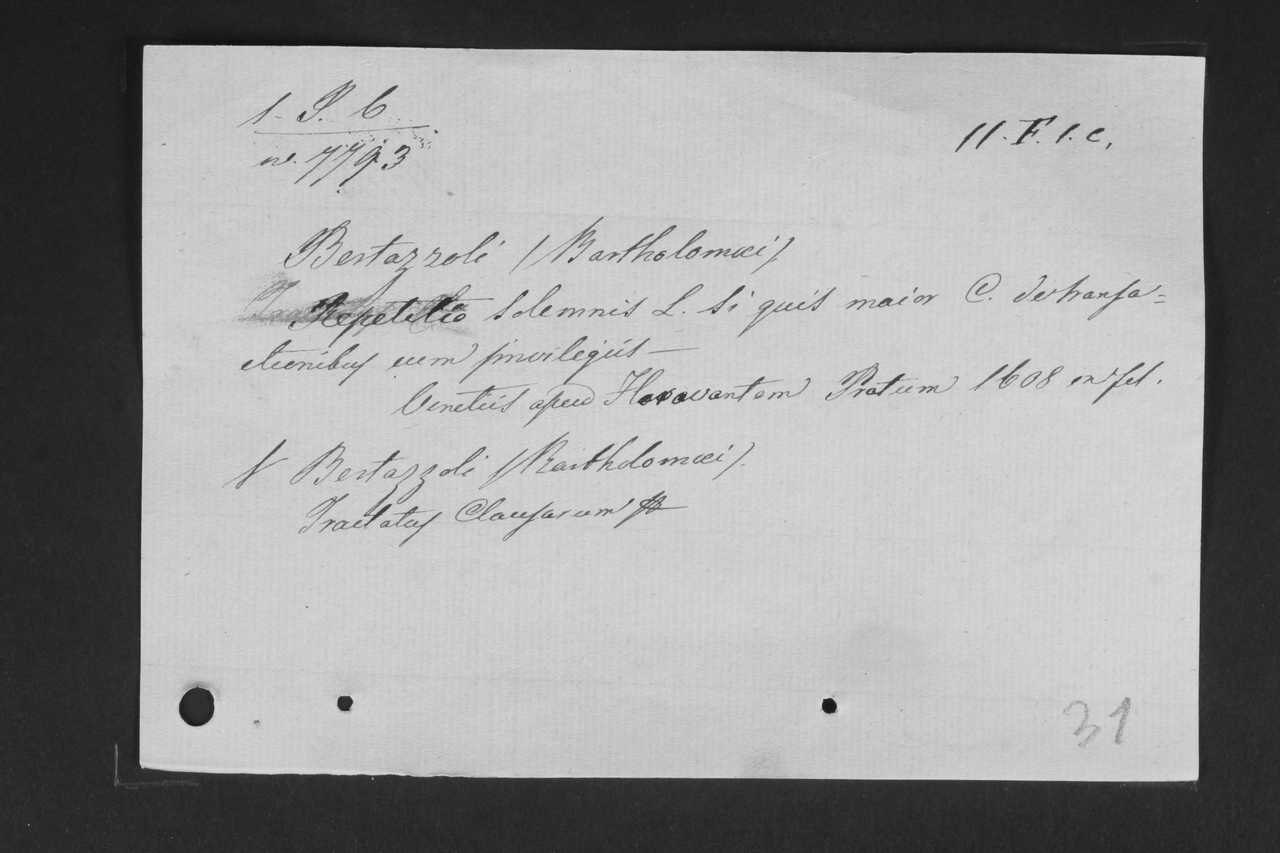 1. P. 6
nr. 7793
11. F. 1. c.
Bertazzoli (Bartholomæi)
Repetitio Solemnis L. Si quis maior C. de transa=
ctionibus cum privilegiis —
Venetiis apud Floravantem Pratum 1608 in fol.
Bertazzoli (Bartholomæi).
Tractatus Clausarum
31